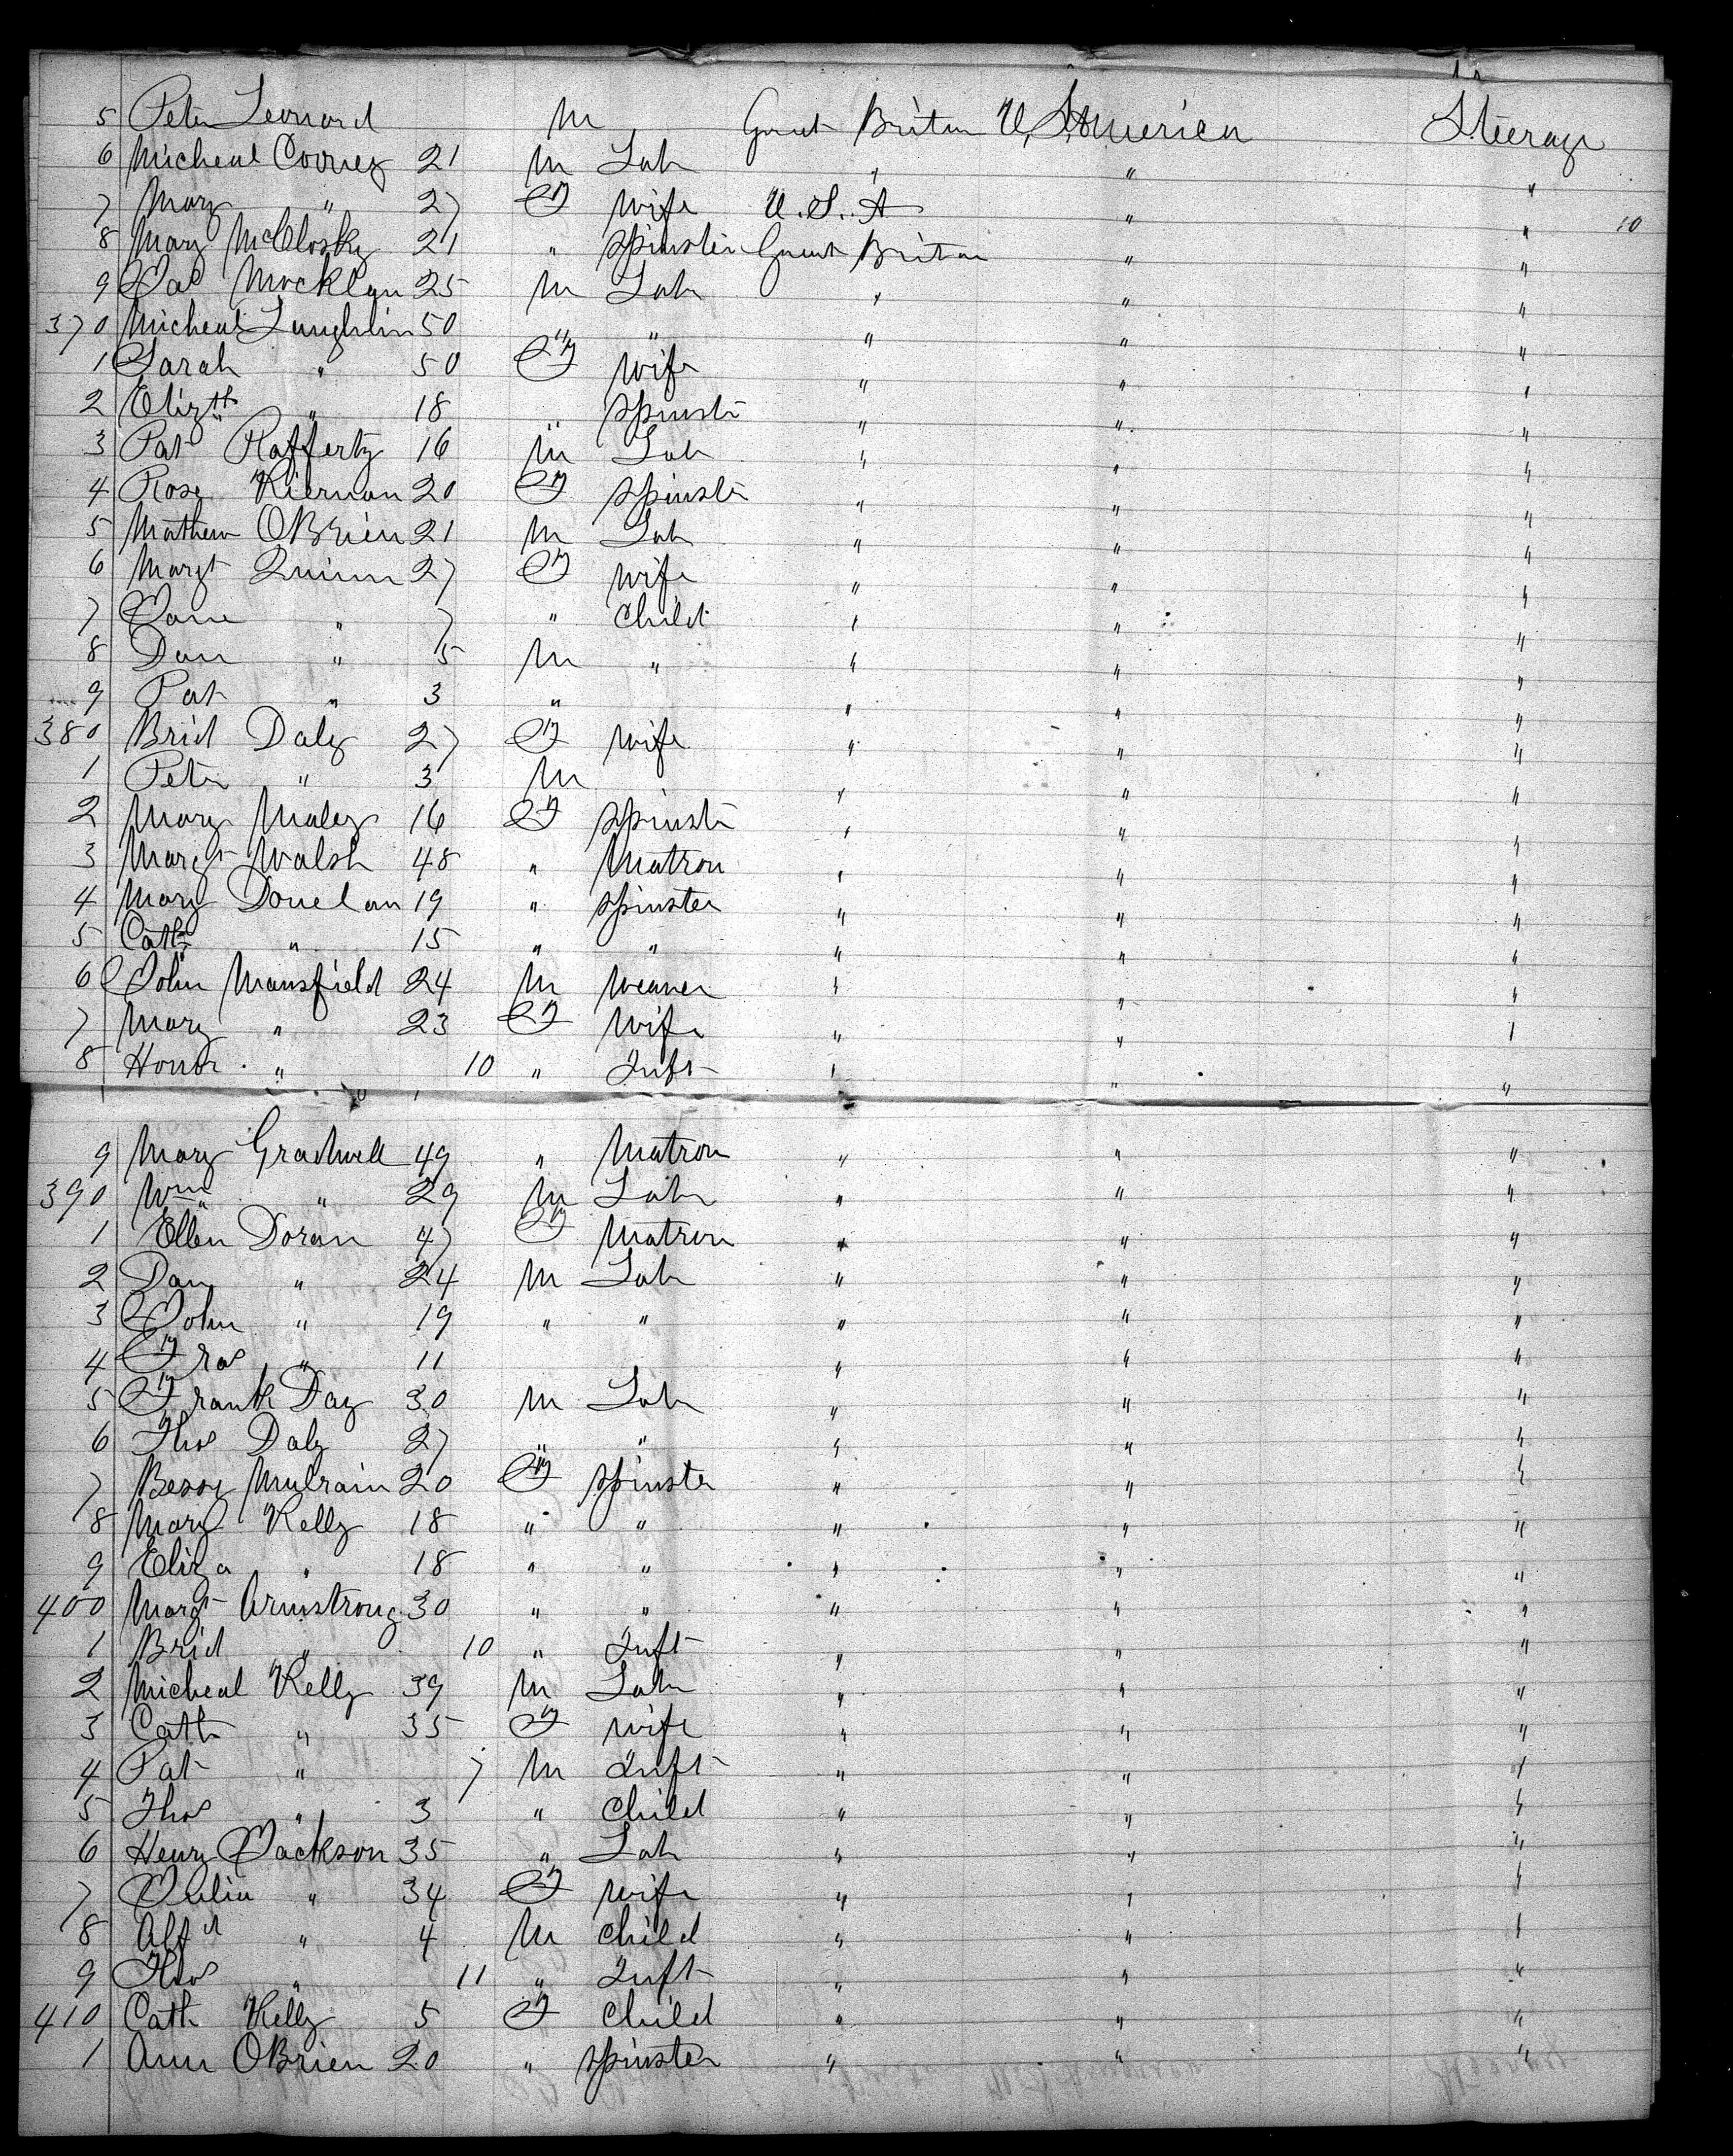 5 Peter Leonard M Great Britan U, S, America Steerage
6 Micheal Cooney 21 M Lab " " "
7 Mary " 27 F wife U. S. A " " 10
8 Mary McClosky 21 " Spinster Great Britan " "
9 Jas Mocklan 25 M Lab " " "
370 Micheal Laughlin 50 " " " " "
1 Sarah " 50 F wife " " "
2 Elizth " 18 " Spinstr " " "
3 Pat Rafferty 16 M Lab " " "
4 Rose Kiernan 20 F Spinstr " " "
5 Mathew OBrien 21 M Lab " " "
6 Margt Quinn 27 F wife " " "
7 Jane " 7 " Child " " "
8 Dan " 5 M " " " "
9 Pat " 3 " " " "
380 Brid Daly 27 F wife " " "
1 Peter " 3 M " " "
2 Mary Maley 16 F Spinstr " " "
3 Margt Walsh 48 " Matron " " "
4 Mary Donelan 19 " Spinster " " "
5 Cath " 15 " " " " "
6 John Mansfield 24 M Weaver " " "
7 Mary " 23 F Wife " " "
8 Honor " 10 " Inft " " "
9 Mary Gradwell 49 " Matron " " "
390 Wm " 29 M Lab " " "
1 Ellen Doran 47 F Matron " " "
2 Dan " 24 M Lab " " "
3 John " 19 " " " " "
4 Fras " 11 " " "
5 Frank Day 30 M Lab " " "
6 Thos Daly 27 " " " " "
7 Bessy Mulrain 20 F Spinster " " "
8 Mary Kelly 18 " " " " "
9 Eliza " 18 " " " " "
400 Margt Armstrong 30 " " " " "
1 Brid " 10 " Inft " " "
2 Micheal Kelly 39 M Lab " " "
3 Cath " 35 F wife " " "
4 Pat " 7 M Inft " " "
5 Thos " 3 " Child " " "
6 Henry Jackson 35 " Lab " " "
7 Julia " 34 F wife " " "
8 Alfd " 4 M Child " " "
9 Thos " 11 " Inft " " "
410 Cath Kelly 5 F Child " " "
1 Ann OBrien 20 " Spinster " " "